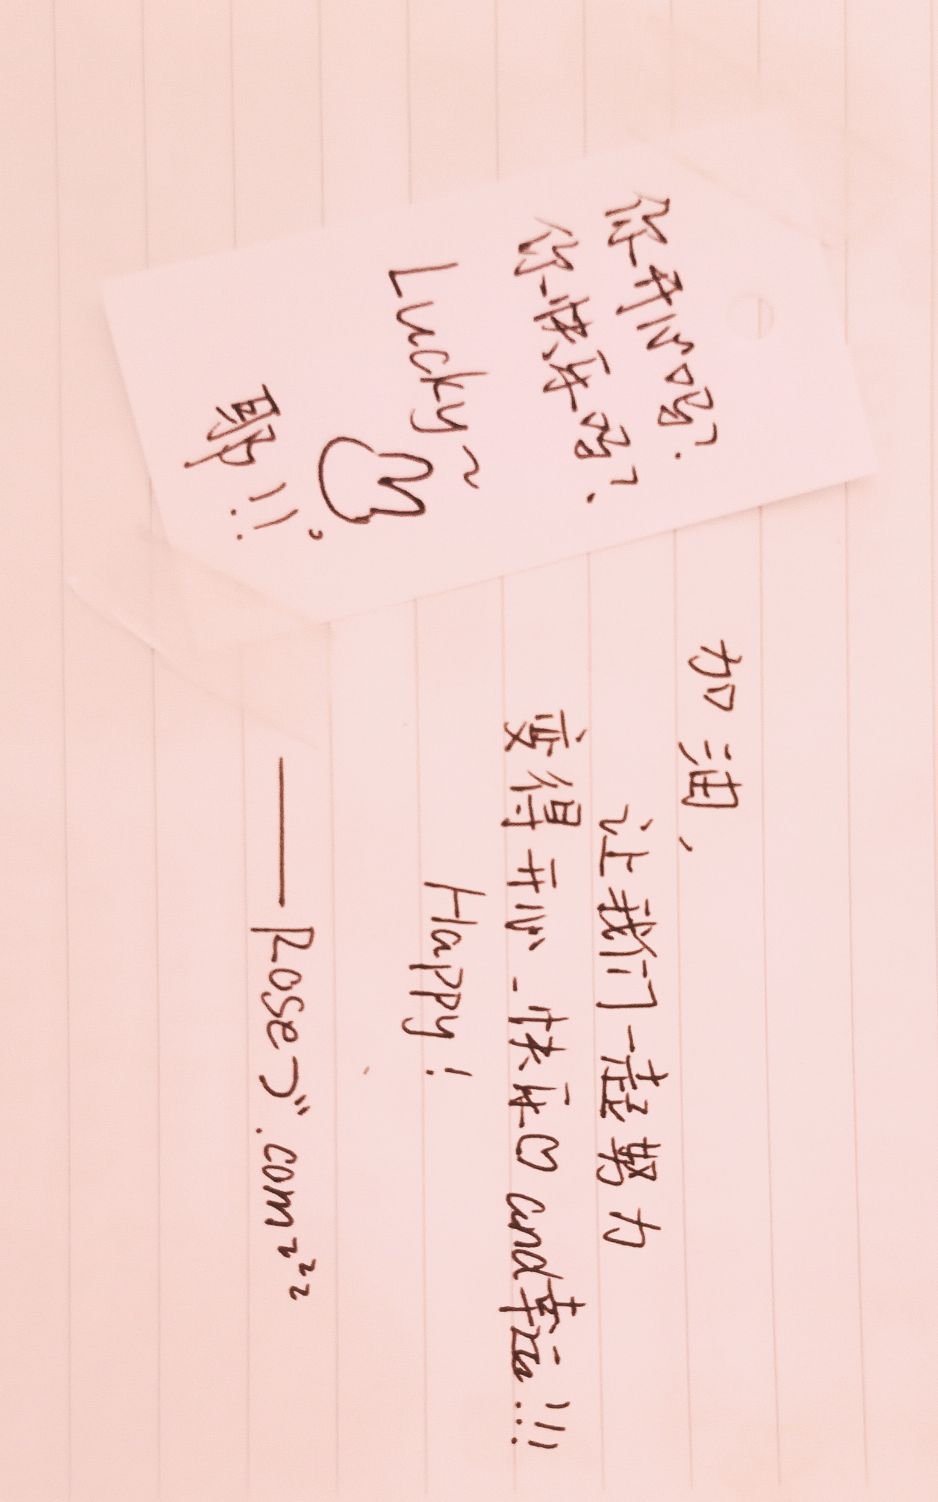 你开心吗?
你快乐吗?
Lucky~
耶!!
加油,
让我们一起努力
变得开心、快乐♡and幸运!!!
Happy!
——Roseづ.com²²²